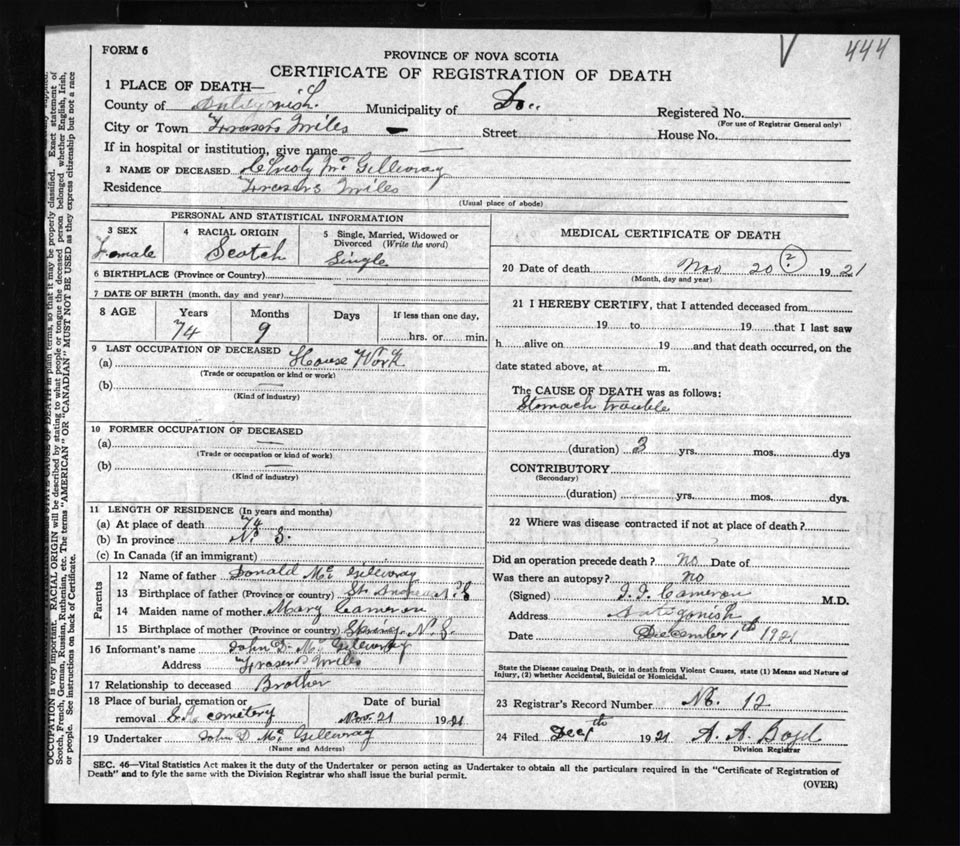 444
FORM 6
PROVINCE OF NOVA SCOTIA
CERTIFICATE OF REGISTRATION OF DEATH
1 PLACE OF DEATH—
County of Antigonish Municipality of Do.. Registered No.
(For use of Registrar General only)
City or Town Frasers Mills — Street House No.
If in hospital or institution, give name —
2 NAME OF DECEASED Christy Mc Gillivray
Residence Frasers Mills
(Usual place of abode)
PERSONAL AND STATISTICAL INFORMATION
3 SEX 4 RACIAL ORIGIN 5 Single, Married, Widowed or Divorced (Write the word)
Female Scotch Single
6 BIRTHPLACE (Province or Country)
7 DATE OF BIRTH (month, day and year)
8 AGE Years Months Days If less than one day,
74 9 hrs. or min.
9 LAST OCCUPATION OF DECEASED House Work
(a)
(Trade or occupation or kind of work)
(b) —
(Kind of industry)
10 FORMER OCCUPATION OF DECEASED
(a) —
(Trade or occupation or kind of work)
(b) —
(Kind of industry)
11 LENGTH OF RESIDENCE (In years and months)
(a) At place of death 74
(b) In province N. S.
(c) In Canada (if an immigrant)
Parents
12 Name of father Donald Mc Gillivray
13 Birthplace of father (Province or country) St. Andrews N. S
14 Maiden name of mother Mary Cameron
15 Birthplace of mother (Province or country) N. S.
16 Informant's name John D. Mc Gillivray
Address Frasers Mills
17 Relationship to deceased Brother
18 Place of burial, cremation or removal cemetery
Date of burial Nov. 21 1921
19 Undertaker John D Mc Gillivray
(Name and Address)
MEDICAL CERTIFICATE OF DEATH
20 Date of death Nov 20 ? 1921
(Month, day and year)
21 I HEREBY CERTIFY, that I attended deceased from
19 to 19 that I last saw
h alive on 19 and that death occurred, on the
date stated above, at m.
The CAUSE OF DEATH was as follows:
Stomach trouble
(duration) 3 yrs. mos. dys
CONTRIBUTORY
(Secondary)
(duration) yrs. mos. dys.
22 Where was disease contracted if not at place of death?
Did an operation precede death? no Date of
Was there an autopsy? no
(Signed) J. J. Cameron M.D.
Address Antigonish
Date December 1th 1921
State the Disease causing Death, or in death from Violent Causes, state (1) Means and Nature of
Injury, (2) whether Accidental, Suicidal or Homicidal.
23 Registrar's Record Number No. 12
24 Filed 1921 A. A. Boyd
Division Registrar
SEC. 46—Vital Statistics Act makes it the duty of the Undertaker or person acting as Undertaker to obtain all the particulars required in the "Certificate of Registration of
Death" and to fyle the same with the Division Registrar who shall issue the burial permit.
(OVER)
OCCUPATION is very important. RACIAL ORIGIN will be described by stating to what people or tongue the deceased person belonged whether English, Irish,
Scotch, French, German, Russian, Ruthenian, etc. The terms "AMERICAN" OR "CANADIAN" MUST NOT BE USED as they express citizenship but not a race
or people. See instructions on back of Certificate.